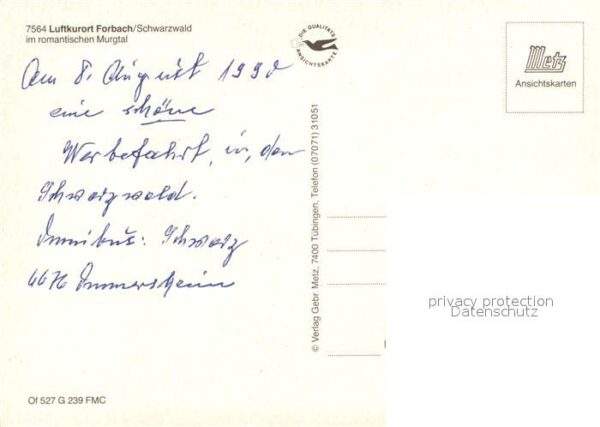 7564 Luftkurort Forbach/Schwarzwald
im romantischen Murgtal
DIE QUALITÄTS
ANSICHTSKARTE
Metz
Ansichtskarten
Am 8. August 1990
eine schöne
Werbefahrt, in, den
Schwarzwald.
Omnibus: Schwarz
6676 Ommersheim
© Verlag Gebr. Metz, 7400 Tübingen, Telefon (07071) 31051
privacy protection
Datenschutz
Of 527 G 239 FMC